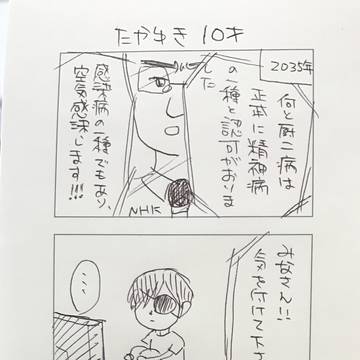 たかゆき 10才
2035年
何と厨二病は
正式に精神病
の一種と認可がおりま
した
感染病の一種でもあり、
空気感染します!!!
NHK
みなさん!!
気を付けて下さ
…